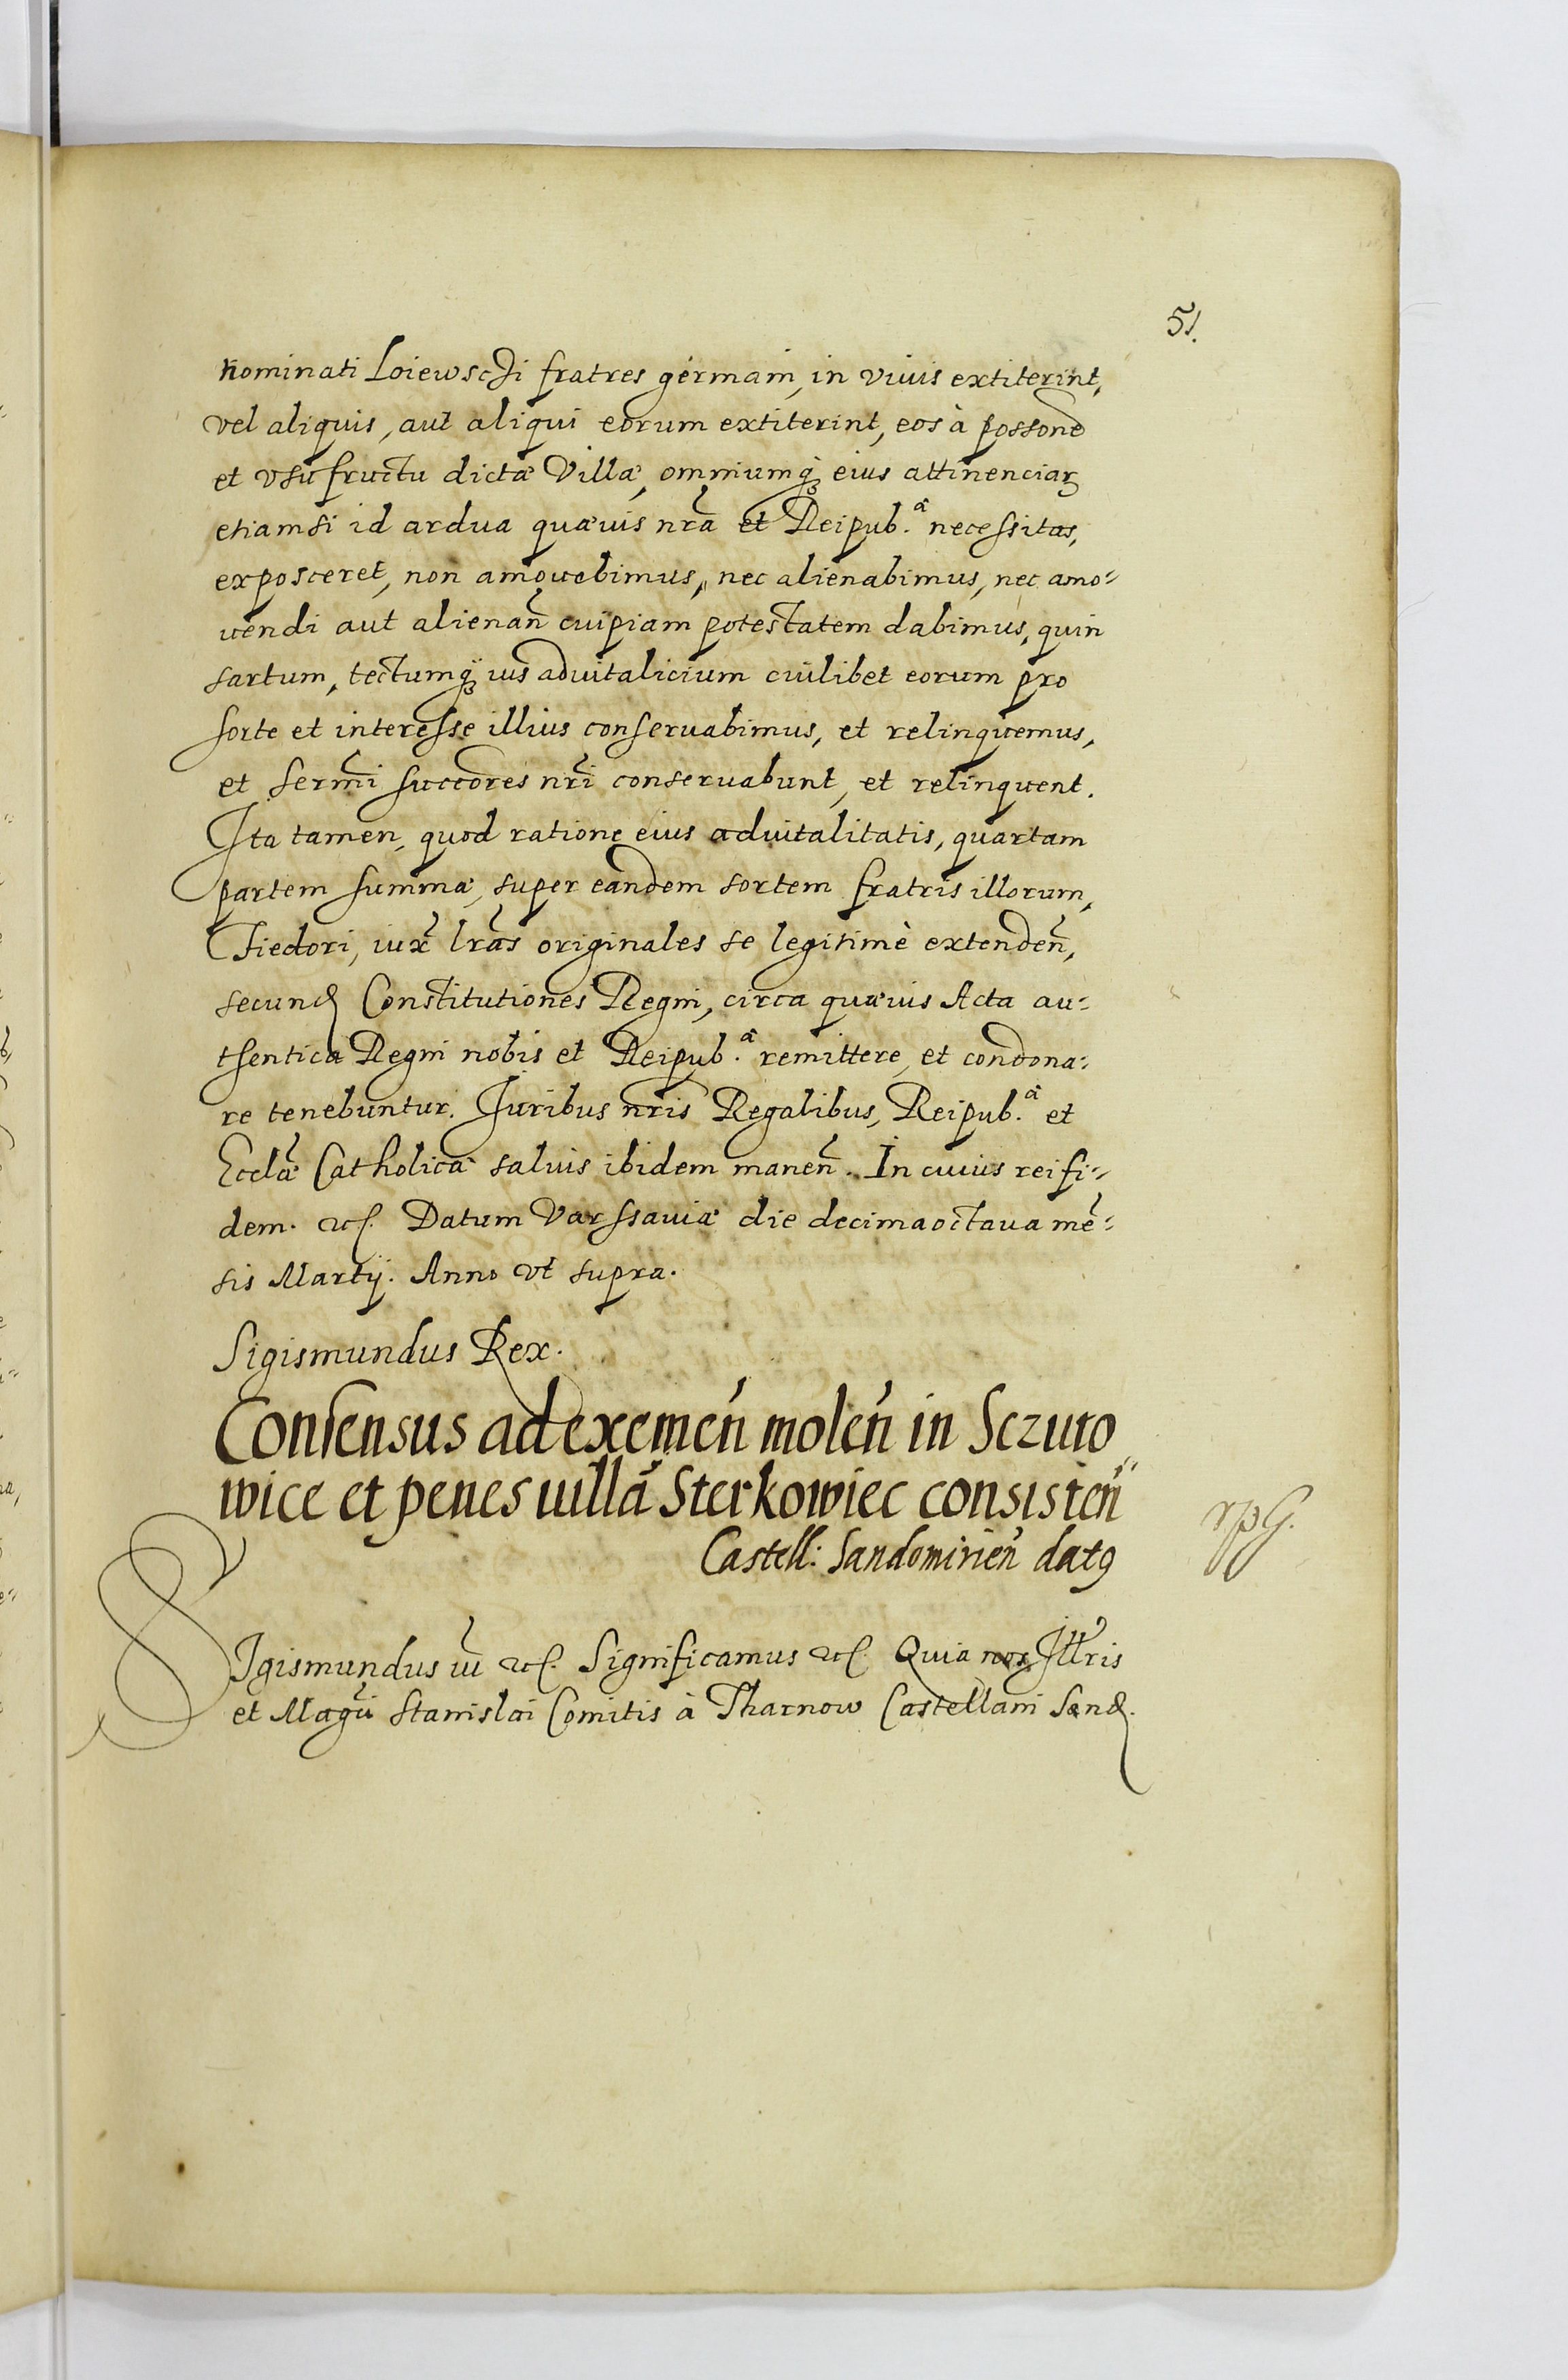 51.
nominati Loiewscÿ fratres germani, in viuis extiterint,
vel aliquis, aut aliqui eorum extiterint, eos à possone
et vsufructu dictæ Villæ, omniumq́ꝫ eius attinenciaꝝ
etiamsi id ardua quæuis nr̃a et Reipub.ᵃ̂ necessitas,
exposceret, non amouebimus, nec alienabimus, nec amo=
uendi aut alienañ cuipiam potestatem dabimus, quin
sartum, tectumq́ꝫ ius aduitalicium cuilibet eorum pro
sorte et interesse illius conseruabimus, et relinquemus,
et serm̃i succores nr̃i conseruabunt, et relinquent.
Ita tamen, quod ratione eius aduitalitatis, quartam
partem summæ, super eandem sortem fratris illorum,
Fiedori, iux̃ lr̃as originales se legitimè extendeñ,
secund Constitutiones Regni, circa quæuis Acta au=
thentica Regni nobis et Reipub.ᵃ̂ remittere, et condona=
re tenebuntur. Iuribus nr̃is Regalibus, Reipub.ᵃ̂ et
Eccl̃æ Catholicæ saluis ibidem maneñ. In cuius rei fi=
dem. ꝛc. Datum Varssauiæ die decimaoctaua mẽ=
sis Martij. Anno vt supra.
Sigismundus Rex.
Consensus ad exemeñ moleñ in Sczuro
wice et penes uillã Sterkowiec consisteñ
Castell: Sandomirieñ datꝰ
rpG.
SIgismundus iii ꝛc. Significamus ꝛc. Quia nos Illr̃is
et Magñi Stanislai Comitis à Tharnow Castellani Sand.